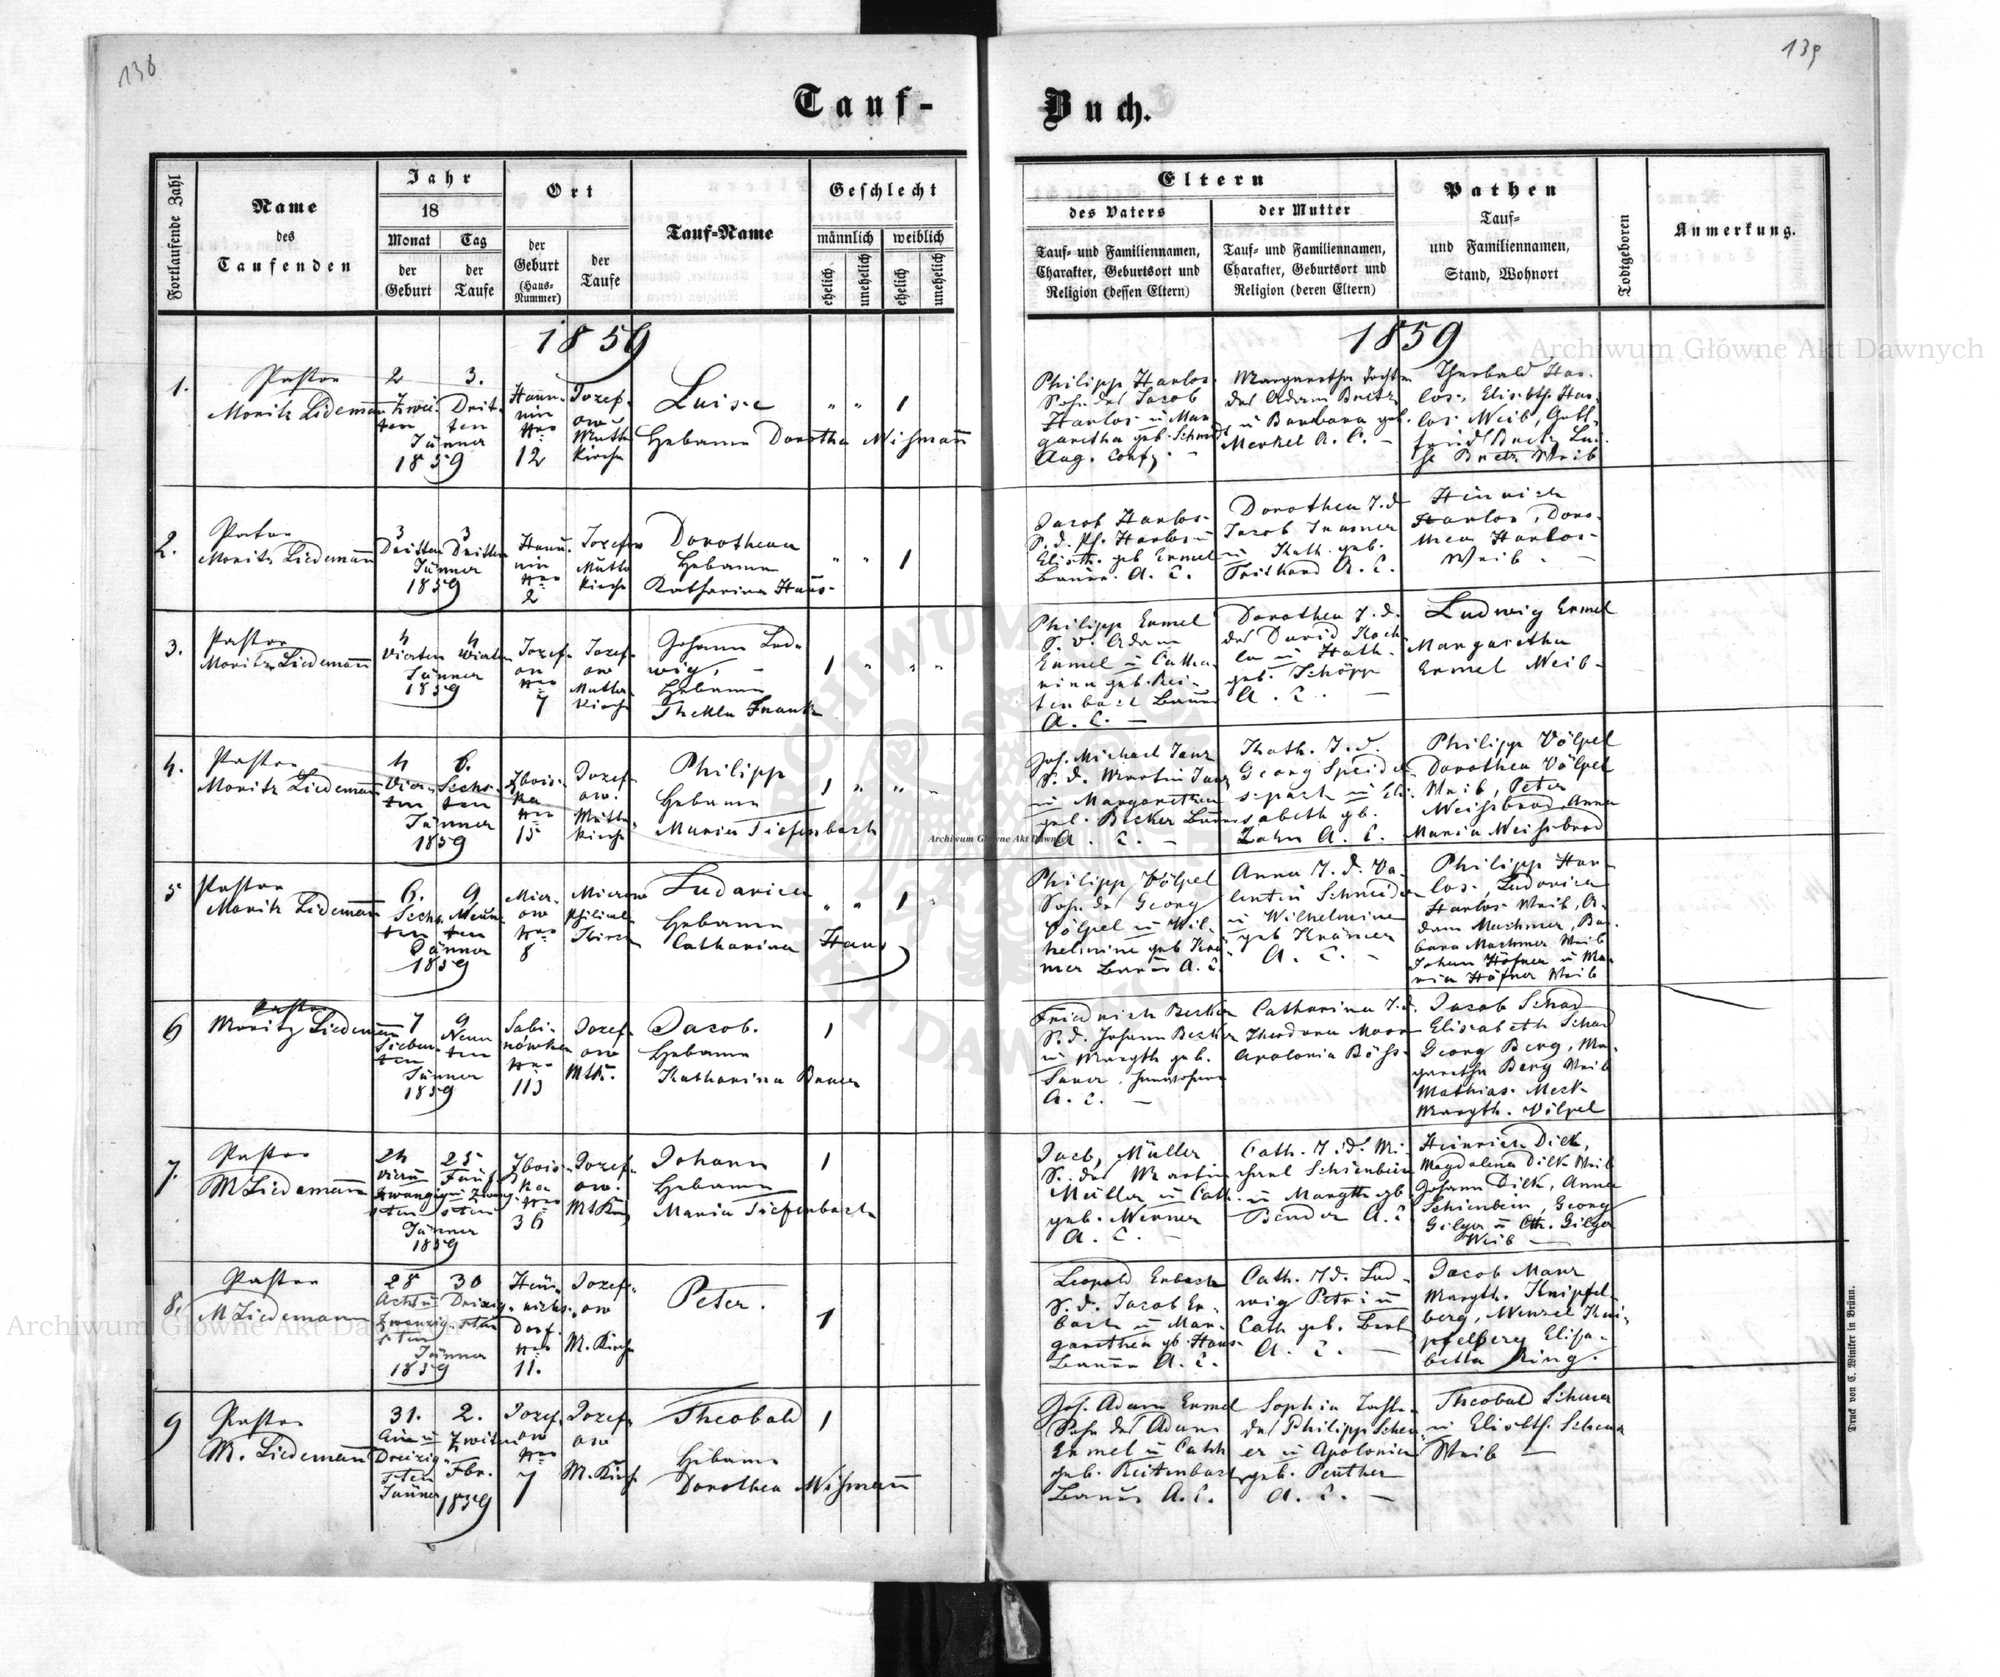 138
139
Tauf-
Buch.
Fortlaufende Zahl
Name
des
Taufenden
Jahr
18
Monat
Tag
der
Geburt
der
Taufe
Ort
der
Geburt
(Haus-
Nummer)
der
Taufe
Tauf-Name
Geschlecht
männlich
weiblich
ehelich
unehelich
ehelich
unehelich
Eltern
des Vaters
der Mutter
Tauf- und Familiennamen,
Charakter, Geburtsort und
Religion (dessen Eltern)
Tauf- und Familiennamen,
Charakter, Geburtsort und
Religion (deren Eltern)
Pathen
Tauf-
und Familiennamen,
Stand, Wohnort
Todtgeboren
Anmerkung.
1859
1859
1.
Pastor
Moritz Liedemann
2
Zwei-
ten
3.
Drit-
ten
Jänner
1859
12
Jozef-
ow
Mutter
kirche
Luise
Hebamme Dorothea
1
Philipp Harlos
Sohn des Jacob
Harlos u Mar
garetha geb. Schmidt
Aug. Conf.
Margaretha Tochter
des Adam Bretz
u Barbara geb.
Merkel A. C.
Theobald Har-
los, Elisbth. Har-
los Weib, Gott-
fried Bretz, Lui-
se Bretz Weib
2.
Pastor
Moritz Liedemann
3
Dritten
3
Dritten
Jänner
1859
2
Jozefow
Mutter
kirche
Dorothea
Hebamme
Katharina Haus
1
Jacob Harlos
S. d. Ph. Harlos u
Elisth. geb Ermel
Bauer. A. C.
Dorothea T. d.
Jacob
u Kath. geb.
A. C.
Heinrich
Harlos, Doro-
thea Harlos
Weib
3.
Pastor
Moritz Liedemann
4
Vierten
4
Vierten
Jänner
1859
Jozef-
ow
Nro
7
Jozef-
ow
Mutter
kirche
Johann Lud-
wig,
Hebamme
Thekla Frank
1
Philipp Ermel
S. d. Adam
Ermel u Catha-
rina geb. Rei-
tenbach Bauer
A. C.
Dorothea T. d.
des David Koch
u Kath
geb. Schöpp
A. C.
Ludwig Ermel
Margaretha
Ermel Weib
4.
Pastor
Moritz Liedemann
4
Vier-
ten
6.
Sechs-
ten
Jänner
1859
Zbois-
ka
Nro
15
Jozef-
ow
Mutter
kirche
Philipp
Hebamme
Maria Tiefenbach
1
Joh. Michael Janz
S. d. Martin Janz
u Margaretha
geb. Becker Bauer
A. C.
Kath. T. d.
Georg
u Eli-
sabeth gb.
Zahn A. C.
Philipp Völpel
Dorothea Völpel
Weib, Peter
Weissbrod Anna
Maria Weissbrod
5
Pastor
Moritz Liedemann
6.
Sechs-
ten
9
Neun-
ten
Jänner
1859
Mier-
ow
Nro
8
Mierow
Filial
Kirche
Ludovica
Hebamme
Catharina Haus
1
Philipp Völpel
Sohn des Georg
Völpel u Wil-
helmine geb Krä-
mer Bauer A. C.
Anna T. d. Va-
lentin Schneider
u Wilhelmine
geb Krämer
A. C.
Philipp Har-
los, Ludovica
Harlos Weib, A-
dam Machmer, Bar-
bara Machmer Weib
Johann Höfner u Ma-
ria Höfner Weib
6
Pastor
Moritz Liedemann
7
Sieben-
ten
9
Neun
ten
Jänner
1859
Sabi-
nówka
Nro
113
Jozef-
ow
MtK.
Jacob.
Hebamme
Katharina Bauer
1
Friedrich Becker
S. d. Johann Becker
u Margth geb.
A. C.
Catharina T. d.
Theodora
Apolonia
Jacob Schad
Elisabeth Schad
Georg Berg, Ma-
garetha Berg Weib
Mathias Merk
Margth. Völpel
7.
Pastor
M Liedemann
24
Vier u
zwanzig
sten
25
Fünf
u Zwanzig
sten
Jänner
1859
Zbois-
ka
Nro
36
Jozef-
ow.
Johann
Hebamme
Maria Tiefenbach
1
Jacb, Müller
S. des Martin
Müller u Cath.
geb. Werner
A. C.
Cath. T. d. Mi-
chael Schienbein
u Margth gb
Bender A. C
Heinrich Dick,
Magdalena Dick Weib
Johann Dick, Anna
Schienbein, Georg
Gilger u Cth. Gilger
Weib
8.
Pastor
M Liedemann
28
Acht u
zwanzig-
sten
30
Dreizig-
sten
Jänner
1859
Hein-
richs-
dorf
Nro
11.
Jozef-
ow
M. Kirche
Peter.
1
Leopold Enbach
S. d. Jacob En-
bach u Mar-
garetha gb Haus
Bauer A. C.
Cath. T d. Lud-
wig Petri u
Cath geb.
A. C.
Jacob Manz
Margth. Knipfel-
berg, Wenzel Kni-
pfelberg Elisa-
betha Ring.
9
Pastor
M. Liedemann
31.
Ein u
Dreizig-
sten
Jänner
2.
Zweiten
Fbr.
1859
Jozef-
ow
Nro
7
Jozef-
ow
M. Kirche
Theobald
Hebamme
Dorothea
1
Joh. Adam Ermel
Sohn des Adam
Ermel u Cath
geb. Reitenbach
Bauer A. C.
Sophia Tochter
des Philipp Scheu-
er u Apolonia
geb. Peuther
A. C.
Theobald Scheuer
u Elisbth. Scheuer
Weib
Druck von C. Winiker in Brünn.
Archiwum Główne Akt Dawnych
Archiwum Główne Akt Dawnych
Archiwum Główne Akt Dawnych